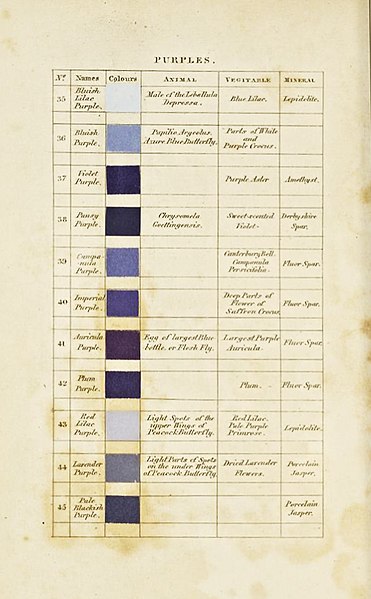 PURPLES.
Nº. Names Colours ANIMAL VEGITABLE MINERAL
35 Bluish Lilac Purple. Male of the Lebellula Depressa. Blue Lilac. Lepidolite.
36 Bluish Purple. Papilio Argeolus. Azure Blue Butterfly. Parts of White and Purple Crocus.
37 Violet Purple. Purple Aster Amethyst.
38 Pansy Purple. Chrysomela Goettingensis. Sweet-scented Violet. Derbyshire Spar.
39 Campanula Purple. Canterbury Bell. Campanula Persicifolia. Fluor Spar.
40 Imperial Purple. Deep Parts of Flower of Saffron Crocus Fluor Spar.
41 Auricula Purple. Egg of largest Blue-bottle, or Flesh Fly. Largest Purple Auricula. Fluor Spar.
42 Plum Purple. Plum. Fluor Spar.
43 Red Lilac Purple. Light Spots of the upper Wings of Peacock Butterfly. Red Lilac. Pale Purple Primrose. Lepidolite.
44 Lavender Purple. Light Parts of Spots on the under Wings of Peacock Butterfly. Dried Lavender Flowers. Porcelain Jasper.
45 Pale Blackish Purple. Porcelain Jasper.